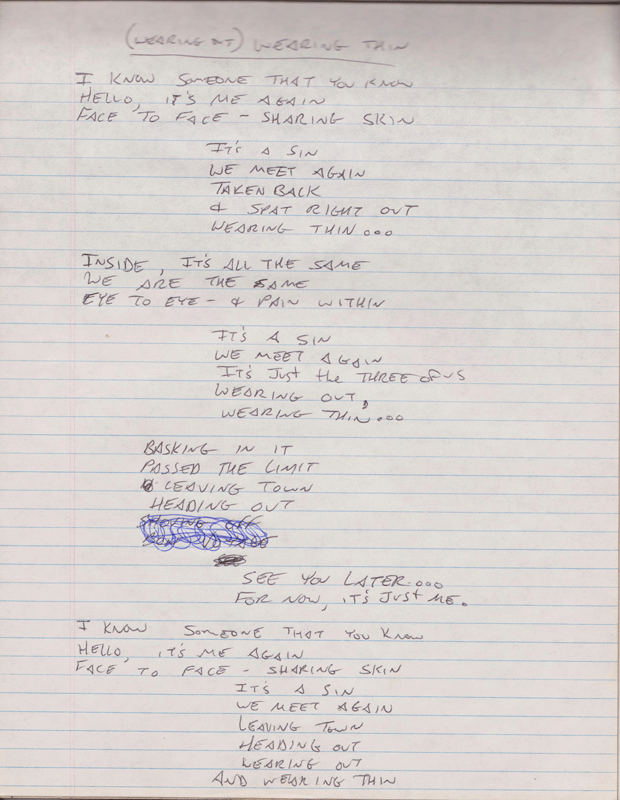 (WEARING OUT) WEARING THIN
I KNOW SOMEONE THAT YOU KNOW
HELLO, IT'S ME AGAIN
FACE TO FACE - SHARING SKIN
IT'S A SIN
WE MEET AGAIN
TAKEN BACK
& SPAT RIGHT OUT
WEARING THIN...
INSIDE, IT'S ALL THE SAME
WE ARE THE SAME
EYE TO EYE - & PAIN WITHIN
IT'S A SIN
WE MEET AGAIN
IT'S JUST the THREE OF US
WEARING OUT,
WEARING THIN...
BASKING IN IT
PASSED THE LIMIT
LEAVING TOWN
HEADING OUT
SEE YOU LATER...
FOR NOW, IT'S JUST ME.
I KNOW SOMEONE THAT YOU KNOW
HELLO, IT'S ME AGAIN
FACE TO FACE - SHARING SKIN
IT'S A SIN
WE MEET AGAIN
LEAVING TOWN
HEADING OUT
WEARING OUT
AND WEARING THIN